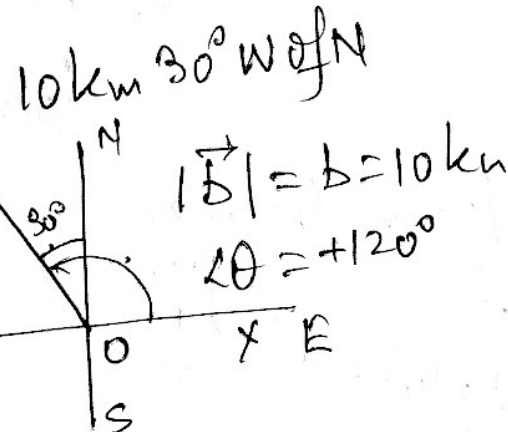 10km 30° W of N
N
|b⃗| = b = 10 km
30°
∠θ = +120°
O
X E
S